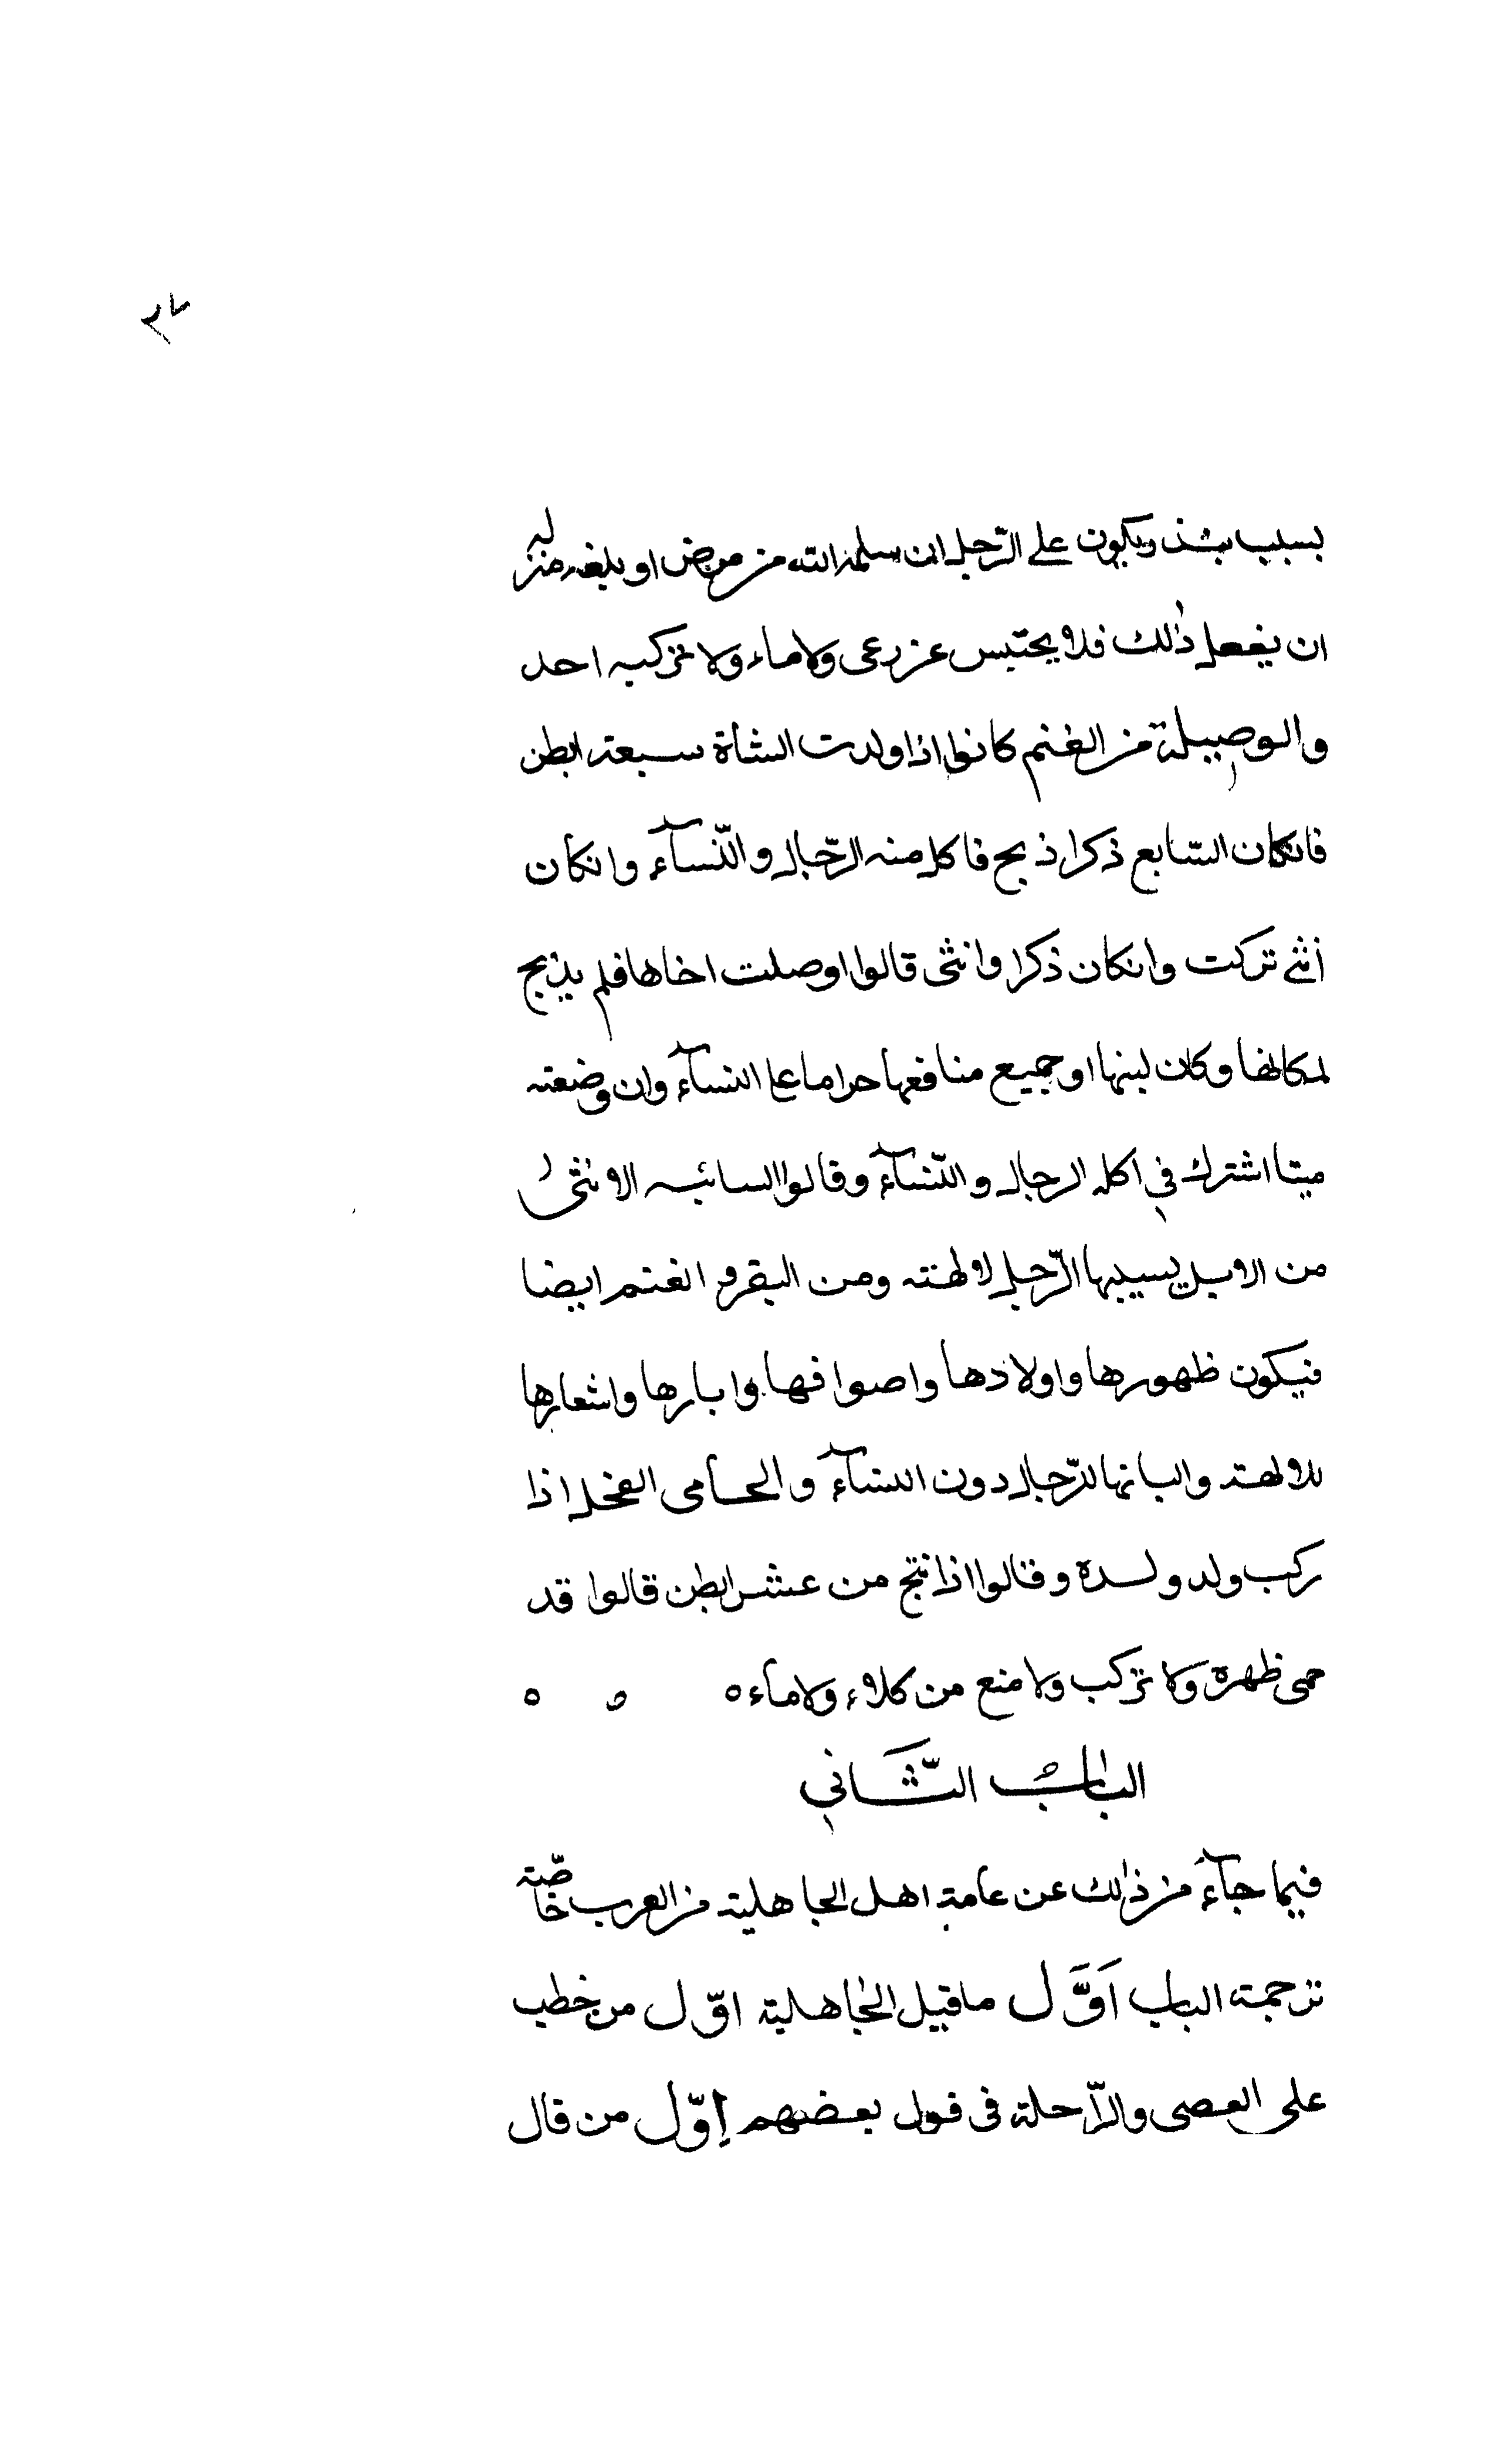 ٢٧
بسبب بنذر ويكون على الرّجل ان سلمه الله من مرض او بلغه منزله
ان يفعل ذلك فلا يحتبس عن رعى ولا ماء ولا تركبه احد
والوصيلة من الغنم كانوا اذا ولدت الشاة سبعة ابطن
فانكان السّابع ذكرا ذبح فاكل منه الرّجال والنّسآء وانكان
أنثى تركت وانكان ذكرا وانثى قالوا اوصلت اخاها فلم يذبح
لمكانها وكان لبنها او جميع منافعها حراما على النسآء وان وضعته
ميتا اشترك في اكله الرجال والنّسآء وقالوا السائبه الانثى
من الابل يسيبها الرّجل لالهته ومن البقر و الغنم ايضا
فيكون ظهورها واولادها واصوافها وابارها واشعارها
للالهته والبانها للرّجال دون النسآء والحامى الفحل اذا
ركب ولد ولده وقالوا اذا نتج من عشر ابطن قالوا قد
حمى ظهره ولا تركب ولا منع من كلاء ولا ماء ه ه ه
الباب الثّاني
فيما جآء من ذلك عن عامة اهل الجاهلية من العرب خاصّة
ترجمة الباب اَوَّل ما قيل الجاهلية اوّل من خطب
على العصى والرّاحلة فى قول بعضهم اوّل من قال